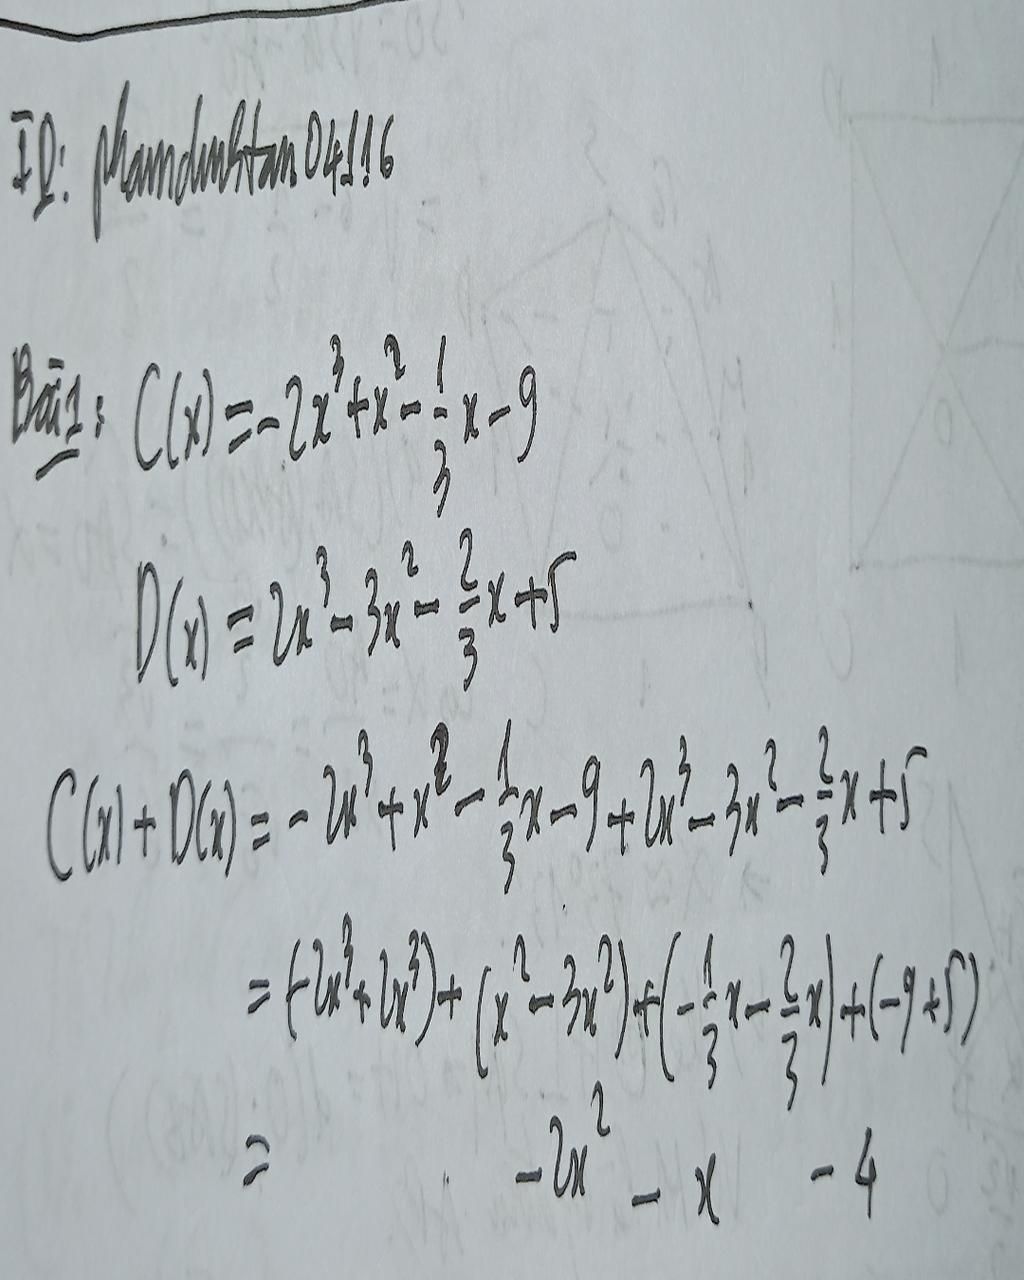 ID: phamdinhtan04116
Bài 1: C(x) = -2x³ + x² - 1/3 x - 9
D(x) = 2x³ - 3x² - 2/3 x + 5
C(x) + D(x) = - 2x³ + x² - 1/3 x - 9 + 2x³ - 3x² - 2/3 x + 5
= (-2x³ + 2x³) + (x² - 3x²) + (- 1/3 x - 2/3 x) + (-9 + 5)
= - 2x² - x - 4